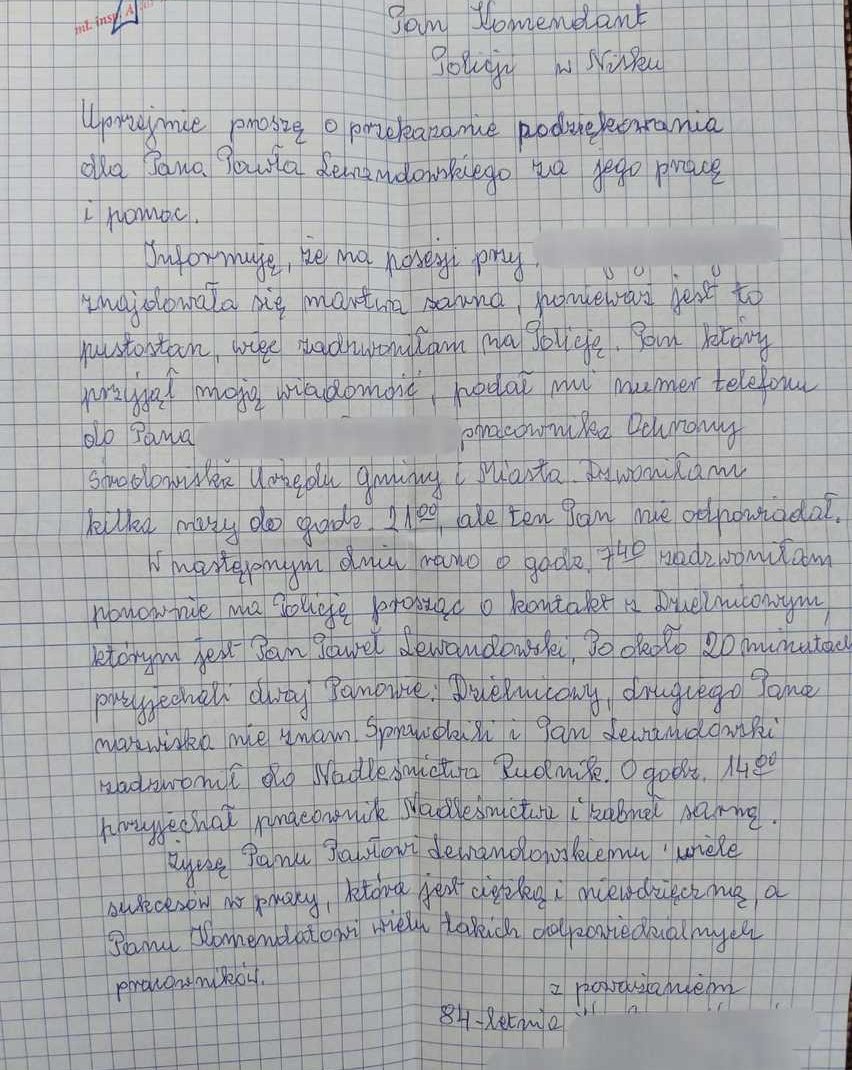 mł. insp. A
Pan Komendant
Policji w Nisku
Uprzejmie proszę o przekazanie podziękowania
dla Pana Pawła Lewandowskiego za jego pracę
i pomoc.
Informuję, że na posesji przy
znajdowała się martwa sarna, ponieważ jest to
pustostan, więc zadzwoniłam na Policję. Pan który
przyjął moją wiadomość, podał mi numer telefonu
do Pana pracownika Ochrony
Środowiska Urzędu Gminy i Miasta. Dzwoniłam
kilka razy do godz. 21⁰⁰, ale ten Pan nie odpowiadał.
W następnym dniu rano o godz. 7⁴⁰ zadzwoniłam
ponownie na Policję prosząc o kontakt z Dzielnicowym,
którym jest Pan Paweł Lewandowski. Po około 20 minutach
przyjechali dwaj Panowie: Dzielnicowy, drugiego Pana
nazwiska nie znam. Sprawdzili i Pan Lewandowski
zadzwonił do Nadleśnictwa Rudnik. O godz. 14⁰⁰
przyjechał pracownik Nadleśnictwa i zabrał sarnę.
Życzę Panu Pawłowi Lewandowskiemu wiele
sukcesów w pracy, która jest ciężką i niewdzięczną, a
Panu Komendatowi wielu takich odpowiedzialnych
pracowników.
z poważaniem
84-letnia